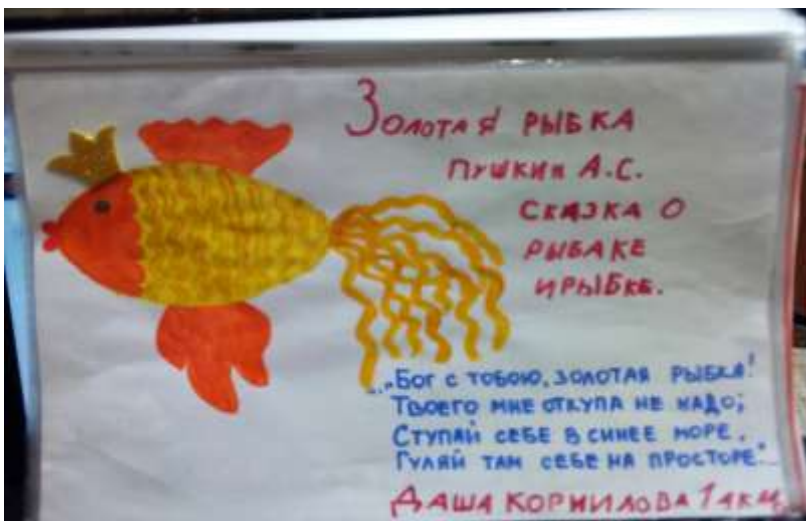 Золотая рыбка
Пушкин А.С.
Сказка о
рыбаке
и рыбке.
..."Бог с тобою, золотая рыбка!
Твоего мне откупа не надо;
Ступай себе в синее море,
Гуляй там себе на просторе"...
Даша Корнилова 1